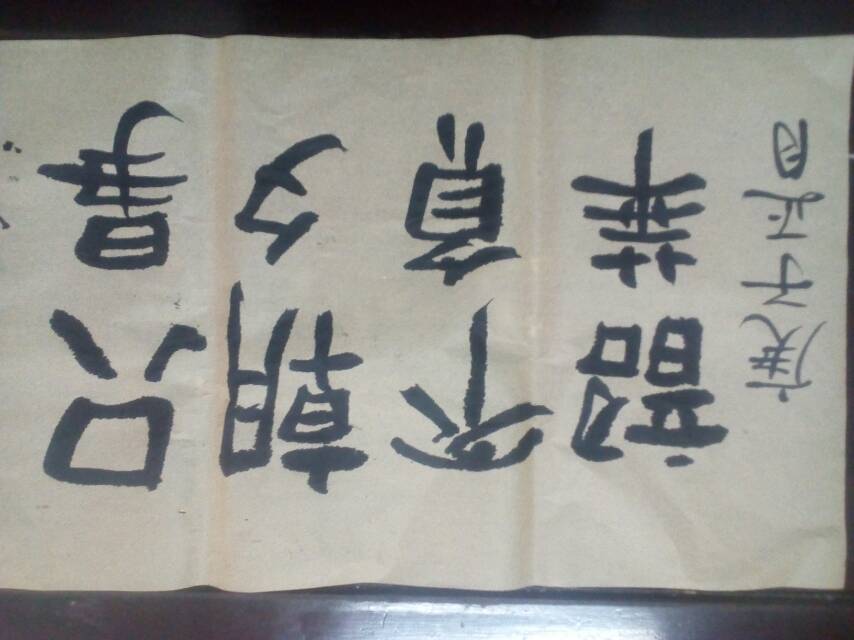 只爭
朝夕
不負
韶華
庚子正月